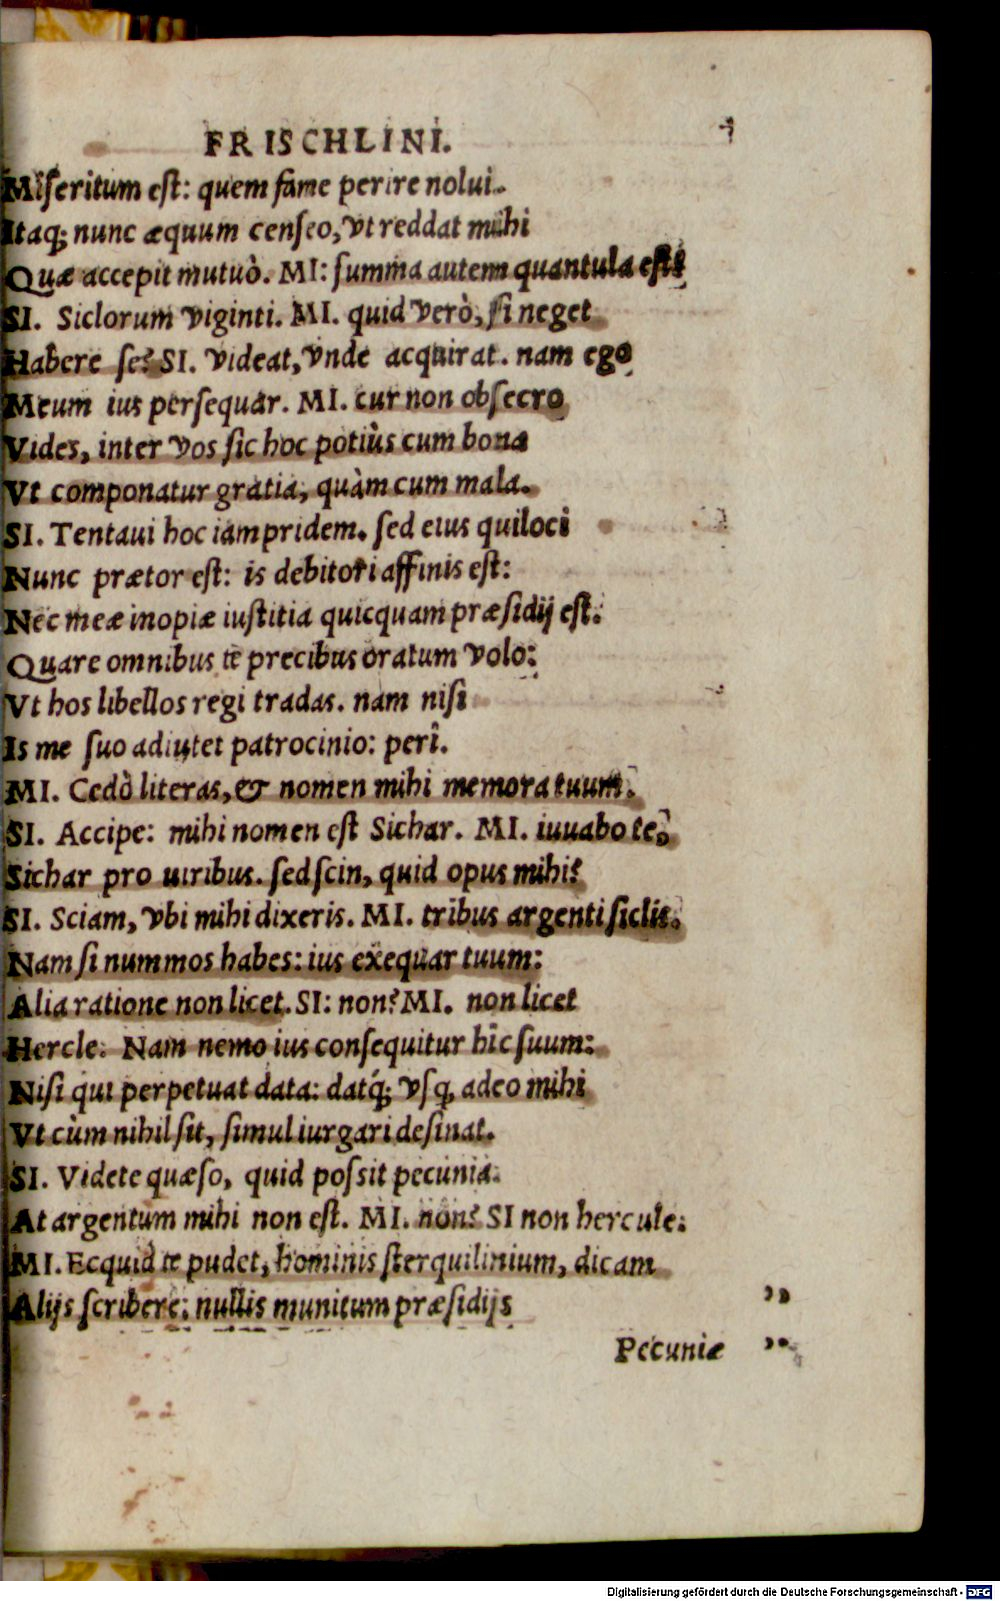 FRISCHLINI.
Miſeritum eſt: quem fame perire nolui.
Itaq; nunc æquum cenſeo, vt reddat mihi
Quæ accepit mutuò. MI: ſumma autem quantula eſt?
SI. Siclorum viginti. MI. quid verò, ſi neget
Habere ſe? SI. videat, vnde acquirat. nam ego
Meum ius perſequar. MI. cur non obſecro
Vides, inter vos ſic hoc potiùs cum bona
Vt componatur gratia, quàm cum mala.
SI. Tentaui hoc iampridem. ſed eius qui loci
Nunc prætor eſt: is debitori affinis eſt:
Nec meæ inopiæ iuſtitia quicquam præſidij eſt.
Quare omnibus te precibus oratum volo:
Vt hos libellos regi tradas. nam niſi
Is me ſuo adiutet patrocinio: perî.
MI. Cedò literas, & nomen mihi memora tuum.
SI. Accipe: mihi nomen eſt Sichar. MI. iuuabo te,
Sichar pro uiribus. ſed ſcin, quid opus mihi?
SI. Sciam, vbi mihi dixeris. MI. tribus argenti ſiclis.
Nam ſi nummos habes: ius exequar tuum:
Alia ratione non licet. SI: non? MI. non licet
Hercle. Nam nemo ius conſequitur hîc ſuum:
Niſi qui perpetuat data: datq́; vſq; adeo mihi
Vt cùm nihil ſit, ſimul iurgari deſinat.
SI. Videte quæſo, quid poſsit pecunia.
At argentum mihi non eſt. MI. non? SI non hercule.
MI. Ecquid te pudet, hominis ſterquilinium, dicam
Alijs ſcribere: nullis munitum præſidijs ,,
Pecuniæ ,,
Digitalisierung gefördert durch die Deutsche Forschungsgemeinschaft - DFG